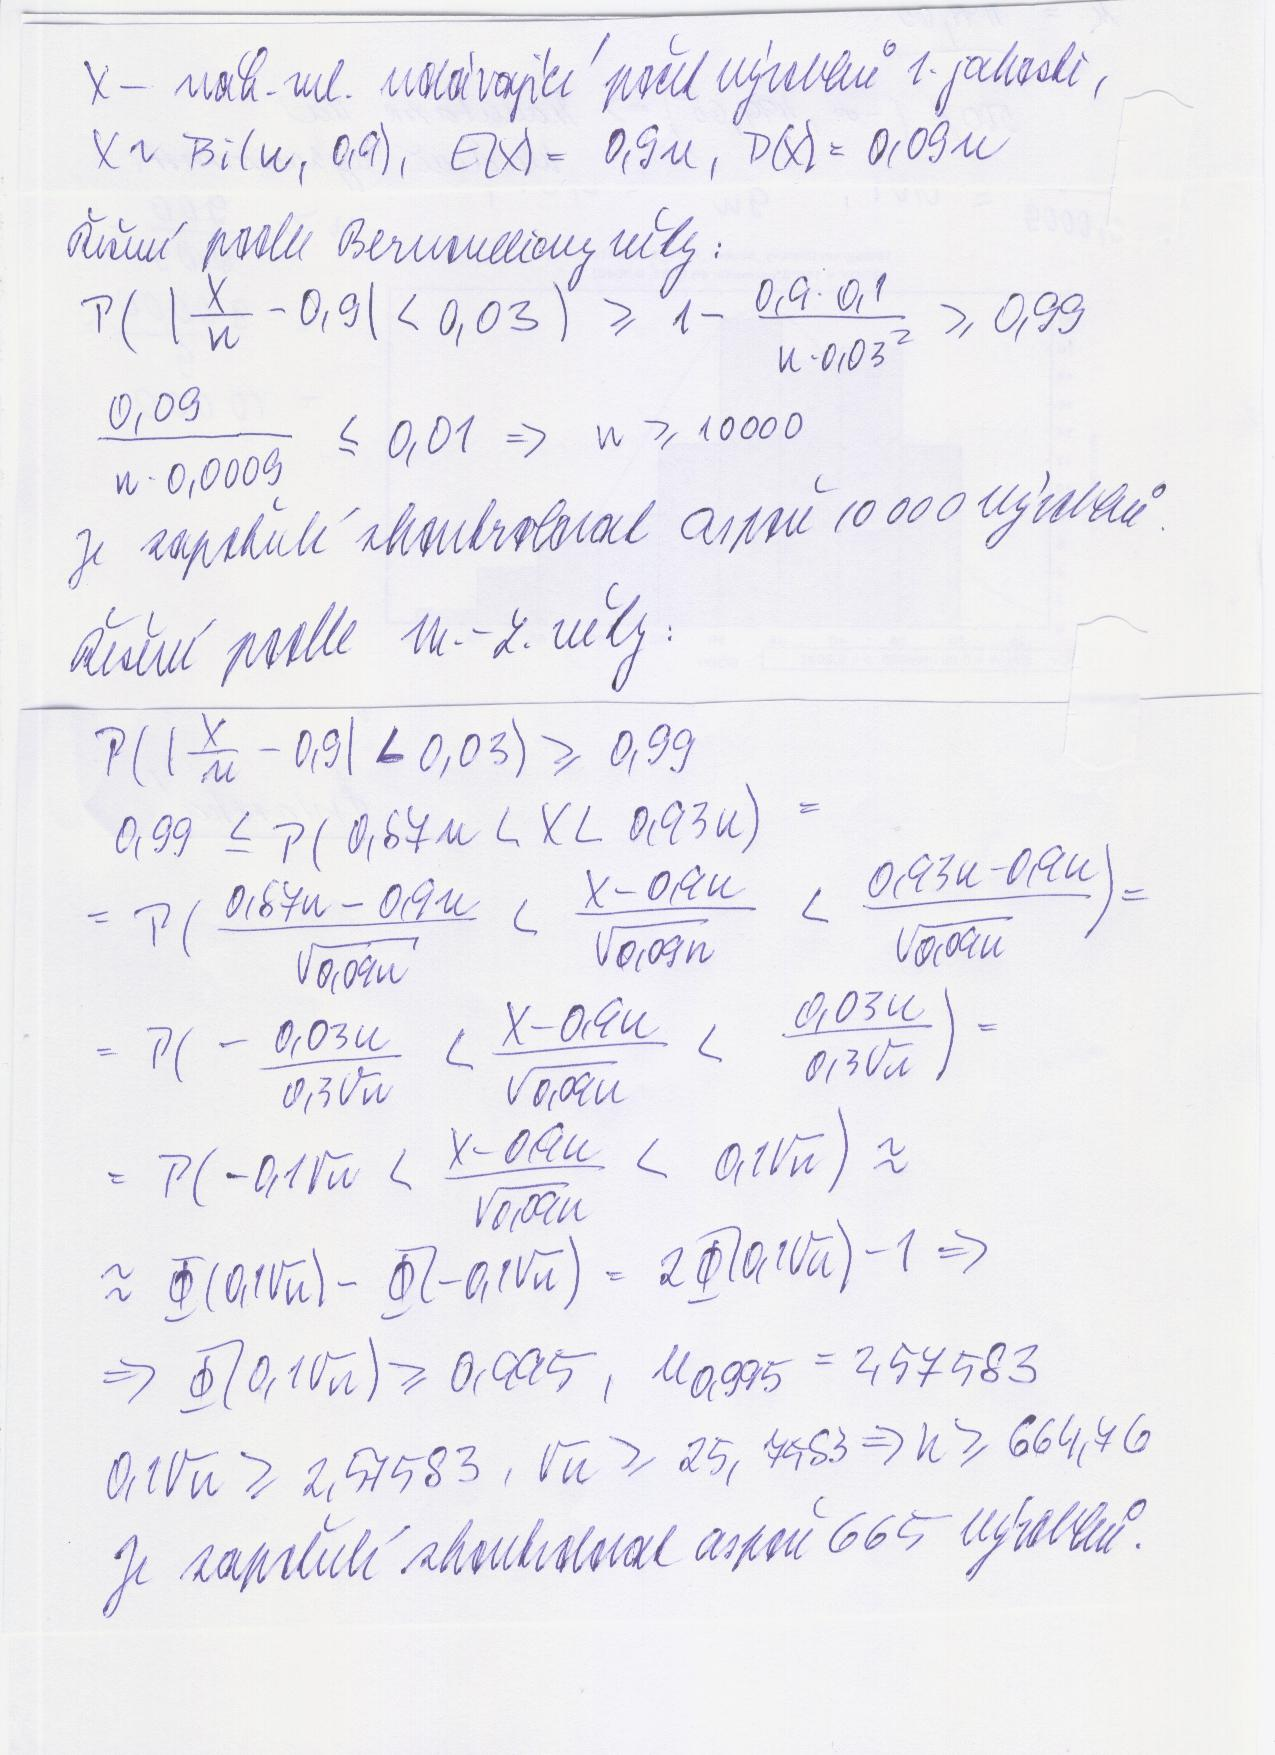 X – náh. vel. udávající počet výrobků 1. jakosti,
X ~ Bi(n, 0,9), E(X) = 0,9n, D(X) = 0,09n
Řešení podle Bernoulliovy věty:
P(|X/n - 0,9| < 0,03) ≥ 1 - (0,9·0,1)/(n·0,03²) ≥ 0,99
0,09/(n·0,0009) ≤ 0,01 ⇒ n ≥ 10000
Je zapotřebí zkontrolovat aspoň 10 000 výrobků.
Řešení podle M.-L. věty:
P(|X/n - 0,9| < 0,03) ≥ 0,99
0,99 ≤ P(0,87n < X < 0,93n) =
= P((0,87n - 0,9n)/√0,09n < (X - 0,9n)/√0,09n < (0,93n - 0,9n)/√0,09n) =
= P(-0,03n/0,3√n < (X - 0,9n)/√0,09n < 0,03n/0,3√n) =
= P(-0,1√n < (X - 0,9n)/√0,09n < 0,1√n) ≈
≈ Φ(0,1√n) - Φ(-0,1√n) = 2Φ(0,1√n) - 1 ⇒
⇒ Φ(0,1√n) ≥ 0,995, u0,995 = 2,57583
0,1√n ≥ 2,57583, √n ≥ 25,7583 ⇒ n ≥ 664,76
Je zapotřebí zkontrolovat aspoň 665 výrobků.